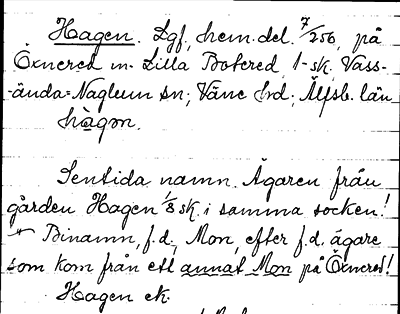 Hagen. Lgf, hem.del. 7/256, på
Öxnered m. Lilla Botered, 1 sk. Vass-
-ända-Naglum sn; Väne hd; Älfsb. län
hàgon.
Sentida namn. Ägaren från
gården Hagen 1/8 sk. i samma socken!
Binamn, f.d., Mon, efter f.d. ägare
som kom från ett annat Mon på Öxnered!
Hagen ek.